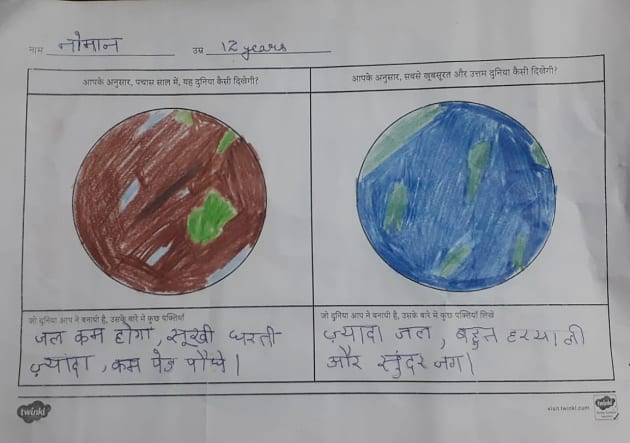 नाम नोमान उम्र 12 years
आपके अनुसार, पचास साल में, यह दुनिया कैसी दिखेगी?
आपके अनुसार, सबसे खूबसूरत और उत्तम दुनिया कैसी दिखेगी?
जो दुनिया आप ने बनायी है, उसके बारे में कुछ पंक्तियाँ
जल कम होगा, सूखी धरती
ज़्यादा, कम पेड़ पौध्ये।
जो दुनिया आप ने बनायी है, उसके बारे में कुछ पंक्तियाँ लिखें
ज़्यादा जल, बहुत हरयाली
और सुंदर जग।
twinkl
visit twinkl.com
twinkl